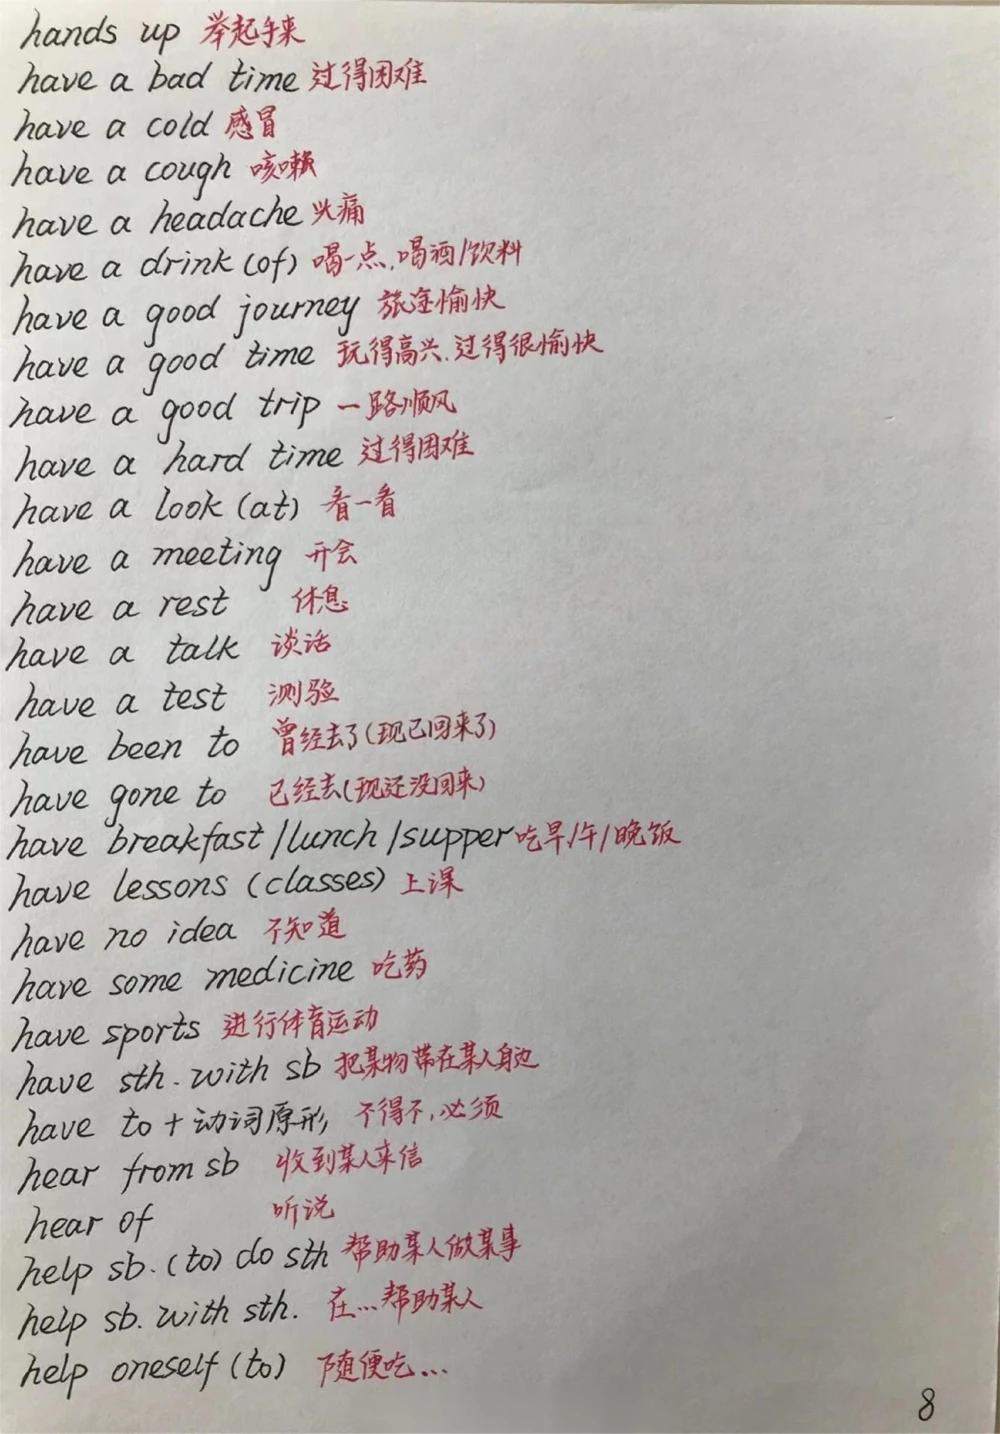 hands up 举起手来
have a bad time 过得困难
have a cold 感冒
have a cough 咳嗽
have a headache 头痛
have a drink (of) 喝一点,喝酒/饮料
have a good journey 旅途愉快
have a good time 玩得高兴,过得很愉快
have a good trip 一路顺风
have a hard time 过得困难
have a look (at) 看一看
have a meeting 开会
have a rest 休息
have a talk 谈话
have a test 测验
have been to 曾经去了(现已回来了)
have gone to 已经去(现还没回来)
have breakfast /lunch /supper 吃早/午/晚饭
have lessons (classes) 上课
have no idea 不知道
have some medicine 吃药
have sports 进行体育运动
have sth. with sb 把某物带在某人身边
have to + 动词原形 不得不,必须
hear from sb 收到某人来信
hear of 听说
help sb. (to) do sth 帮助某人做某事
help sb. with sth. 在...帮助某人
help oneself (to) 随便吃...
8